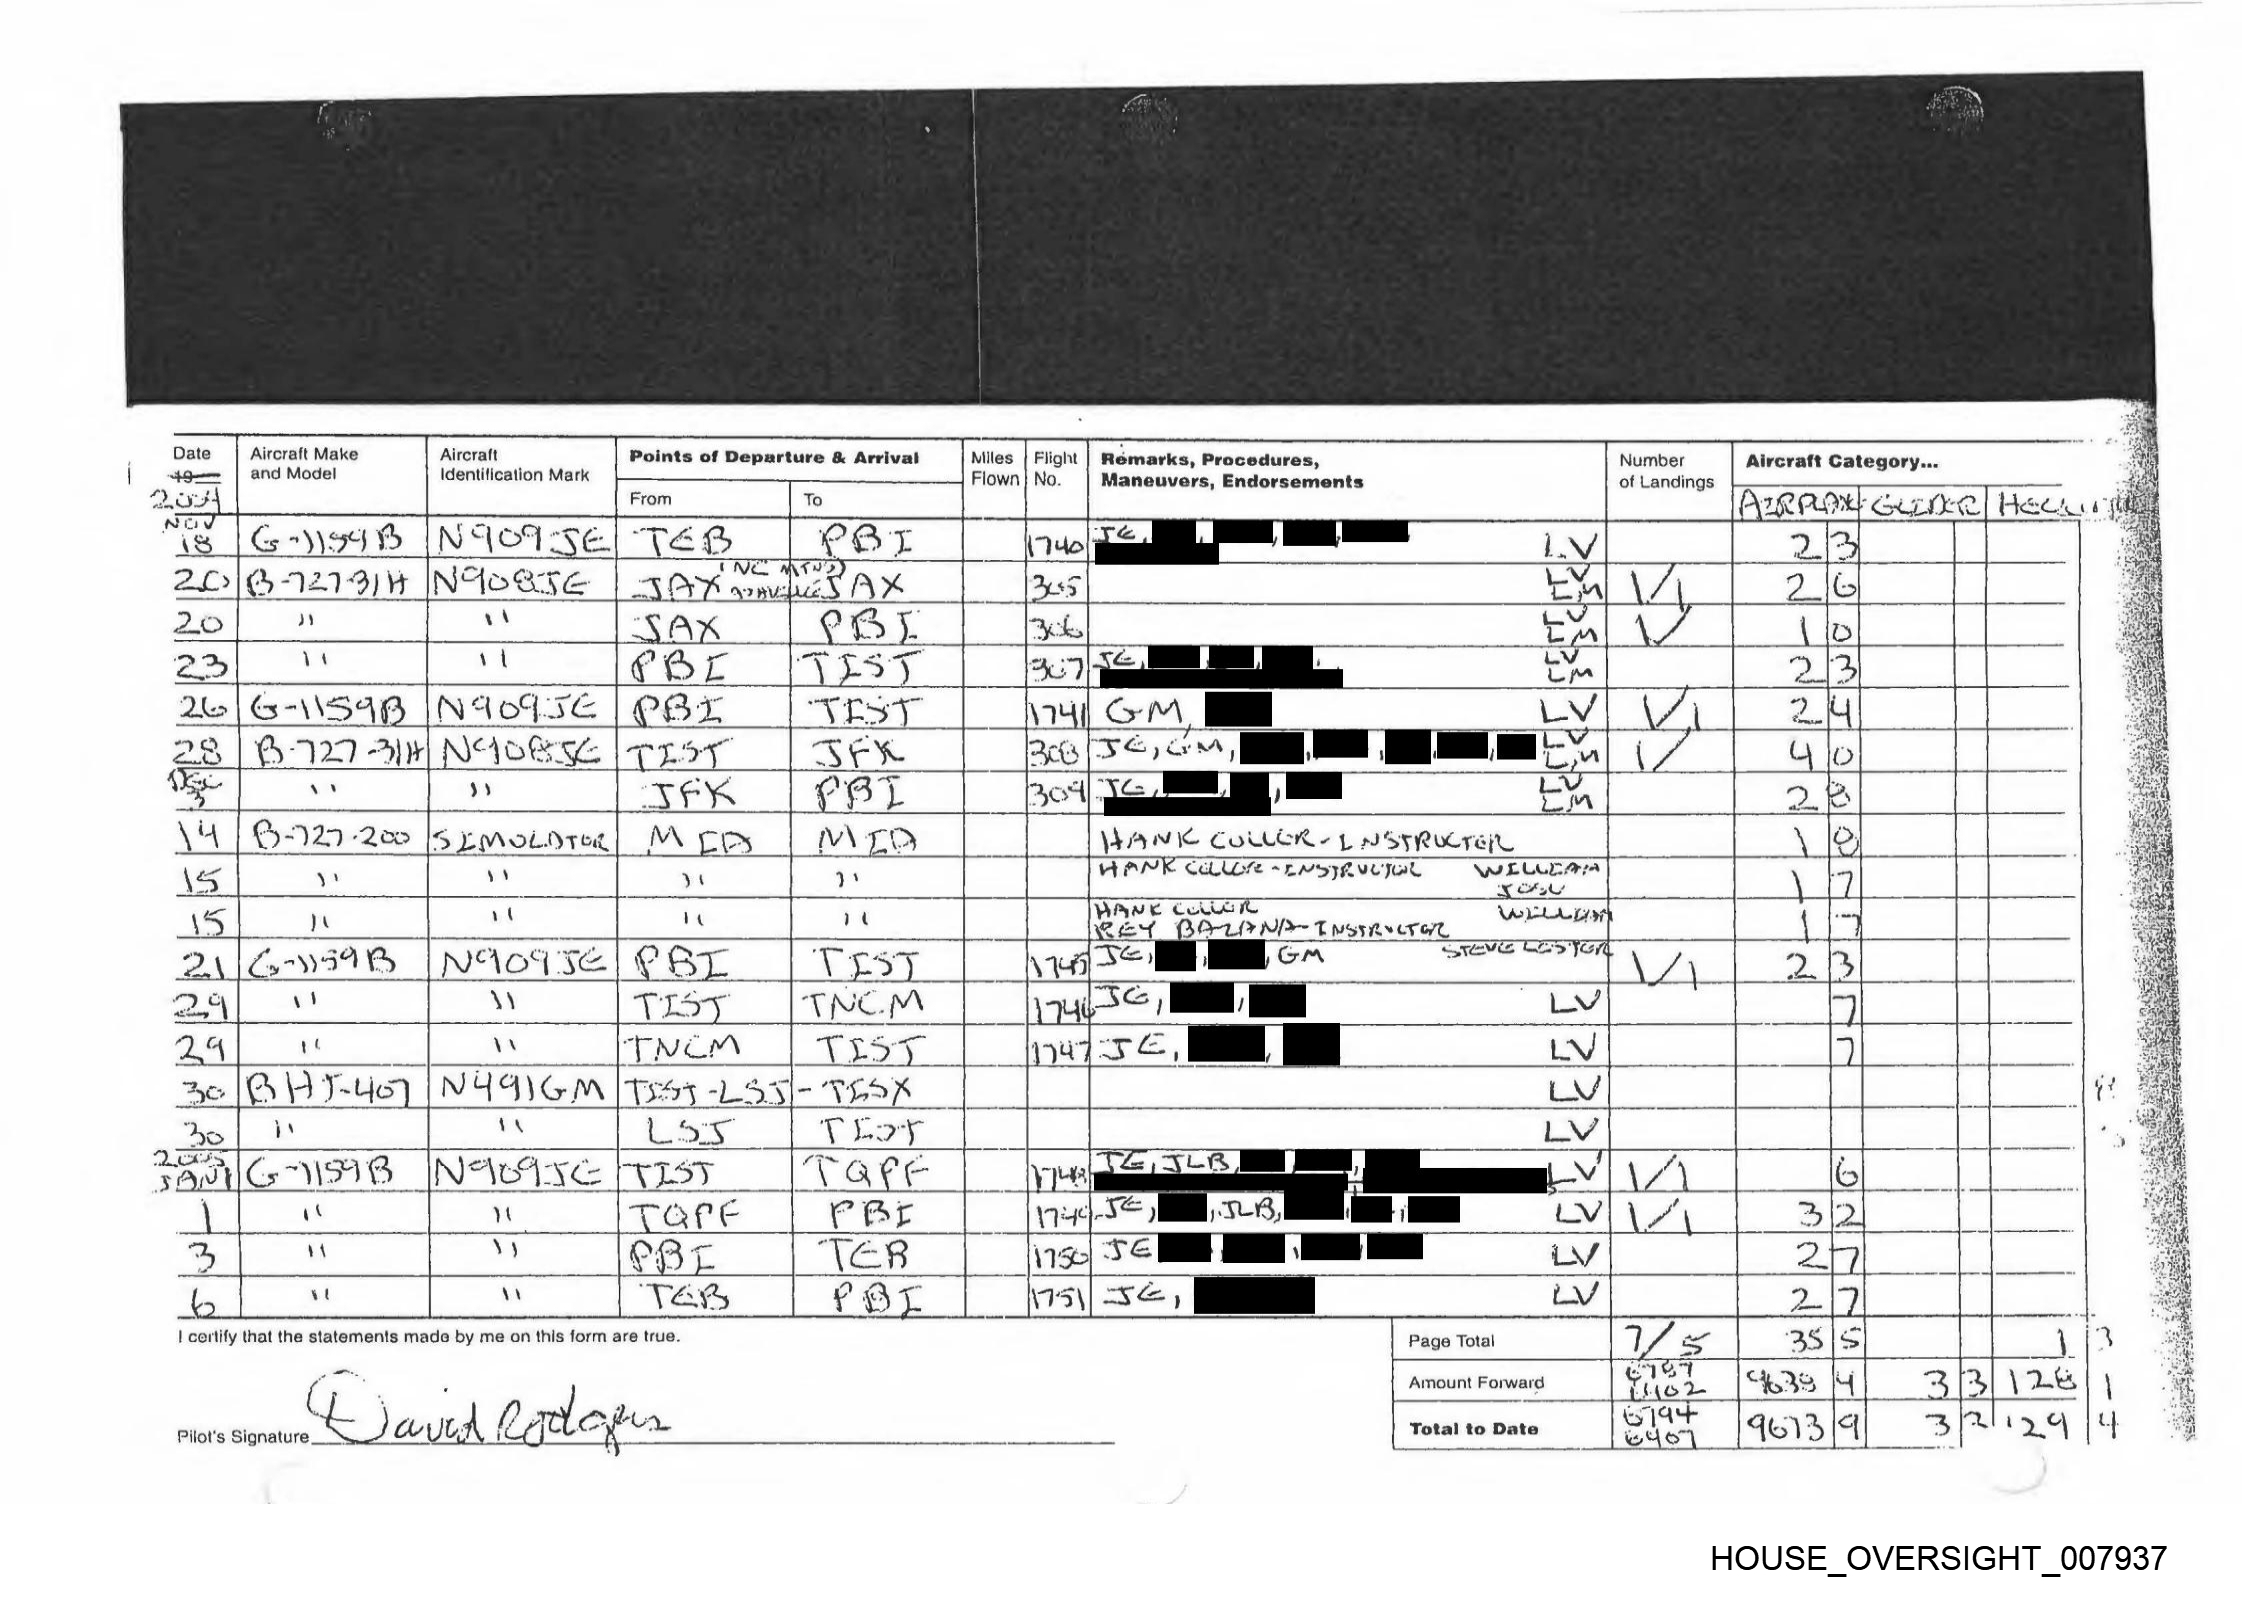 Date Aircraft Make and Model Aircraft Identification Mark Points of Departure & Arrival Miles Flown Flight No. Remarks, Procedures, Maneuvers, Endorsements Number of Landings Aircraft Category...
19
2004 From To AIRPLANE GLIDER
NOV 18 G-1159B N909JE TEB PBI 1740 JE, LV 2 3
20 B-727-31H N908JE JAX (NC MTNS) JAX 305 LV LM 1/1 2 6
20 " " JAX PBI 306 LV LM 1/ 1 0
23 " " PBI TIST 307 JE, LV LM 2 3
26 G-1159B N909JE PBI TIST 1741 GM, LV 1/1 2 4
28 B-727-31H N908JE TIST JFK 308 JE, GM, LV LM 1/ 4 0
DEC 3 " " JFK PBI 309 JE, LV LM 2 8
14 B-727-200 SIMULATOR MIA MIA HANK COLLER-INSTRUCTER 1 8
15 " " " " HANK COLLER-INSTRUCTOR WILLIAM 1 7
15 " " " " HANK COLLER WILLIAM
REY BAZANA-INSTRUCTOR 1 7
21 G-1159B N909JE PBI TIST 1745 JE, , , GM STEVE LESTER 1/1 2 3
29 " " TIST TNCM 1746 JE, , LV 7
29 " " TNCM TIST 1747 JE, , LV 7
30 BHT-407 N491GM TIST-LSJ-TISX LV
30 " " LSJ TIST LV
2005 JAN 1 G-1159B N909JE TIST TQPF 1748 JE, JLB, LV 1/1 6
1 " " TQPF PBI 1749 JE, , JLB, LV 1/1 3 2
3 " " PBI TEB 1750 JE LV 2 7
6 " " TEB PBI 1751 JE, LV 2 7
I certify that the statements made by me on this form are true.
Page Total 7/5 35 5 1 3
Amount Forward 6787 6402 9638 4 3 3 128 1
Pilot's Signature David Rodgers
Total to Date 6794 6407 9673 9 3 3 129 4
HOUSE_OVERSIGHT_007937